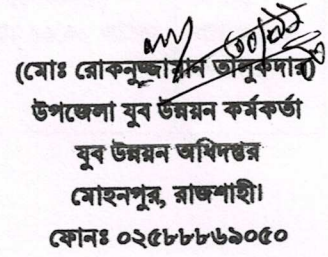 (মোঃ রোকনুজ্জামান তালুকদার)
উপজেলা যুব উন্নয়ন কর্মকর্তা
যুব উন্নয়ন অধিদপ্তর
মোহনপুর, রাজশাহী।
ফোনঃ ০২৫৮৮৮৬৯০৫০